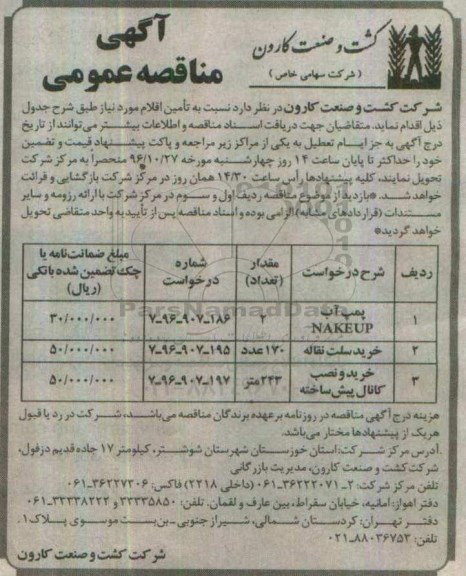 آگهی
مناقصه عمومی
کشت و صنعت کارون
( شرکت سهامی خاص )
شرکت کشت و صنعت کارون در نظر دارد نسبت به تأمین اقلام مورد نیاز طبق شرح جدول
ذیل اقدام نماید. متقاضیان جهت دریافت اسناد مناقصه و اطلاعات بیشتر می‌توانند از تاریخ
درج آگهی به جز ایام تعطیل به یکی از مراکز زیر مراجعه و پاکت پیشنهاد قیمت و تضمین
خود را حداکثر تا پایان ساعت ۱۴ روز چهارشنبه مورخه ۹۶/۱۰/۲۷ منحصراً به مرکز شرکت
تحویل نمایند، کلیه پیشنهادها رأس ساعت ۱۴/۳۰ همان روز در مرکز شرکت بازگشایی و قرائت
خواهد شد. *بازدید از موضوع مناقصه ردیف اول و سوم در مرکز شرکت با ارائه رزومه و سایر
مستندات (قراردادهای مشابه) الزامی بوده و اسناد مناقصه پس از تأییدیه واحد متقاضی تحویل
خواهد گردید*
ردیف | شرح درخواست | مقدار (تعداد) | شماره درخواست | مبلغ ضمانت‌نامه یا چک تضمین شده بانکی (ریال)
۱ | پمپ آب NAKEUP | | ۷-۹۶-۹۰۷-۱۸۶ | ۳۰/۰۰۰/۰۰۰
۲ | خرید سلت نقاله | ۱۷۰ عدد | ۷-۹۶-۹۰۷-۱۹۵ | ۵۰/۰۰۰/۰۰۰
۳ | خرید و نصب کانال پیش ساخته | ۲۴۳ متر | ۷-۹۶-۹۰۷-۱۹۷ | ۵۰/۰۰۰/۰۰۰
هزینه درج آگهی مناقصه در روزنامه بر عهده برندگان مناقصه می‌باشد، شرکت در رد یا قبول
هر یک از پیشنهادها مختار می‌باشد.
.آدرس مرکز شرکت: استان خوزستان شهرستان شوشتر، کیلومتر ۱۷ جاده قدیم دزفول،
شرکت کشت و صنعت کارون، مدیریت بازرگانی
تلفن مرکز شرکت: ۲-۳۶۲۲۲۰۷۱-۰۶۱ (داخلی ۲۲۱۸) فاکس: ۳۶۲۲۷۳۰۶-۰۶۱
دفتر اهواز: امانیه، خیابان سقراط، بین عارف و لقمان. تلفن: ۳۳۳۳۵۸۵۰ و ۳۳۳۳۸۲۲۴-۰۶۱
دفتر تهران: کردستان شمالی، شیراز جنوبی-بن‌بست موسوی پلاک۱.
تلفن: ۸۸۰۳۶۷۵۳-۰۲۱
شرکت کشت و صنعت کارون
ParsNamadData